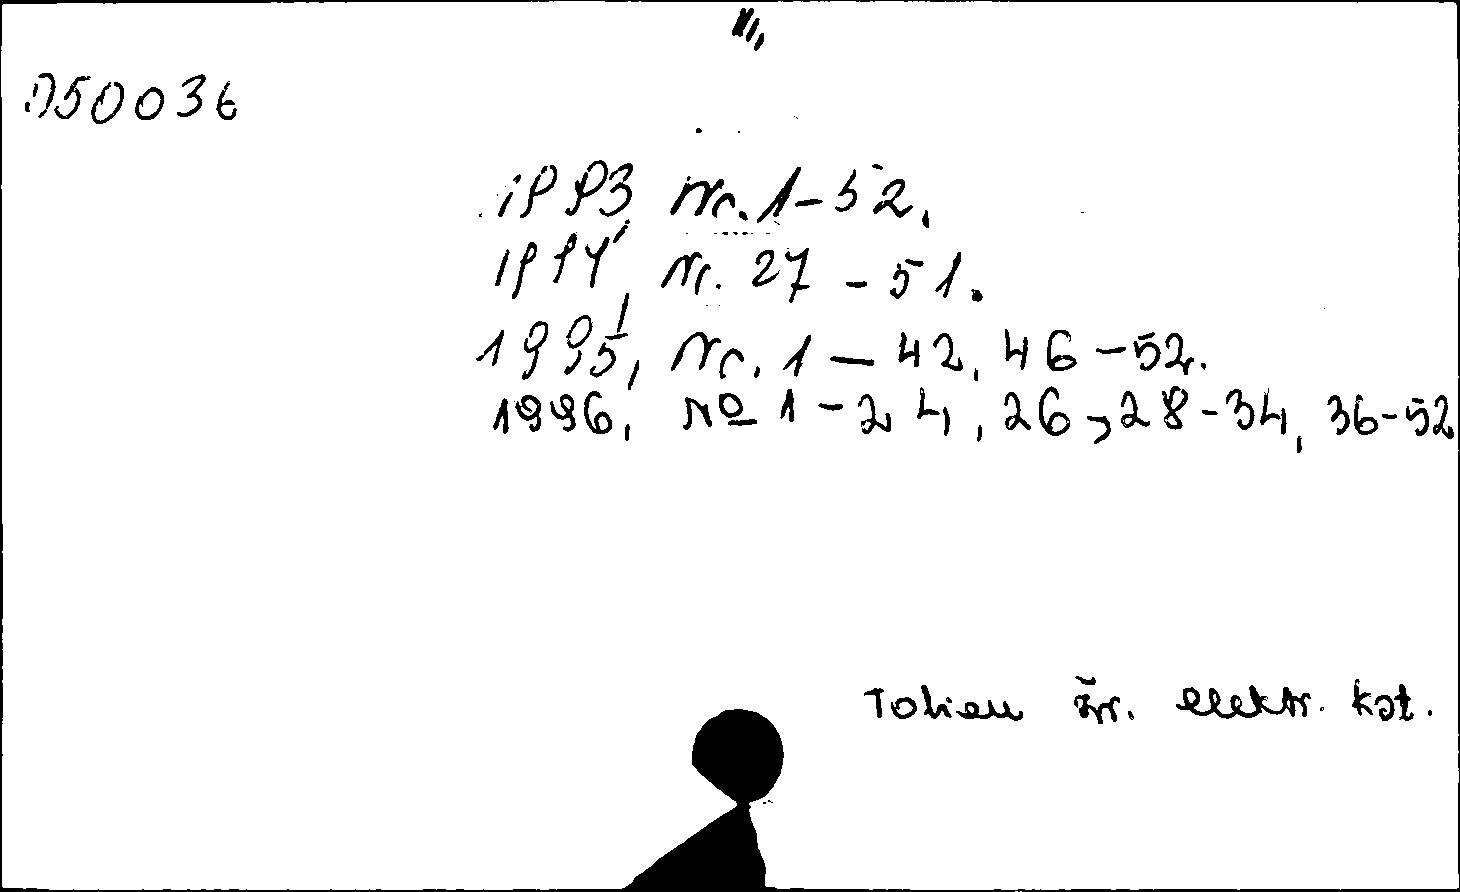 D50036
1993, Nr. 1-52.
1994, Nr. 27-51.
1995, Nr. 1-42, 46-52.
1996, № 1-24, 26, 28-34, 36-52
Toliau žr. elektr. kat.